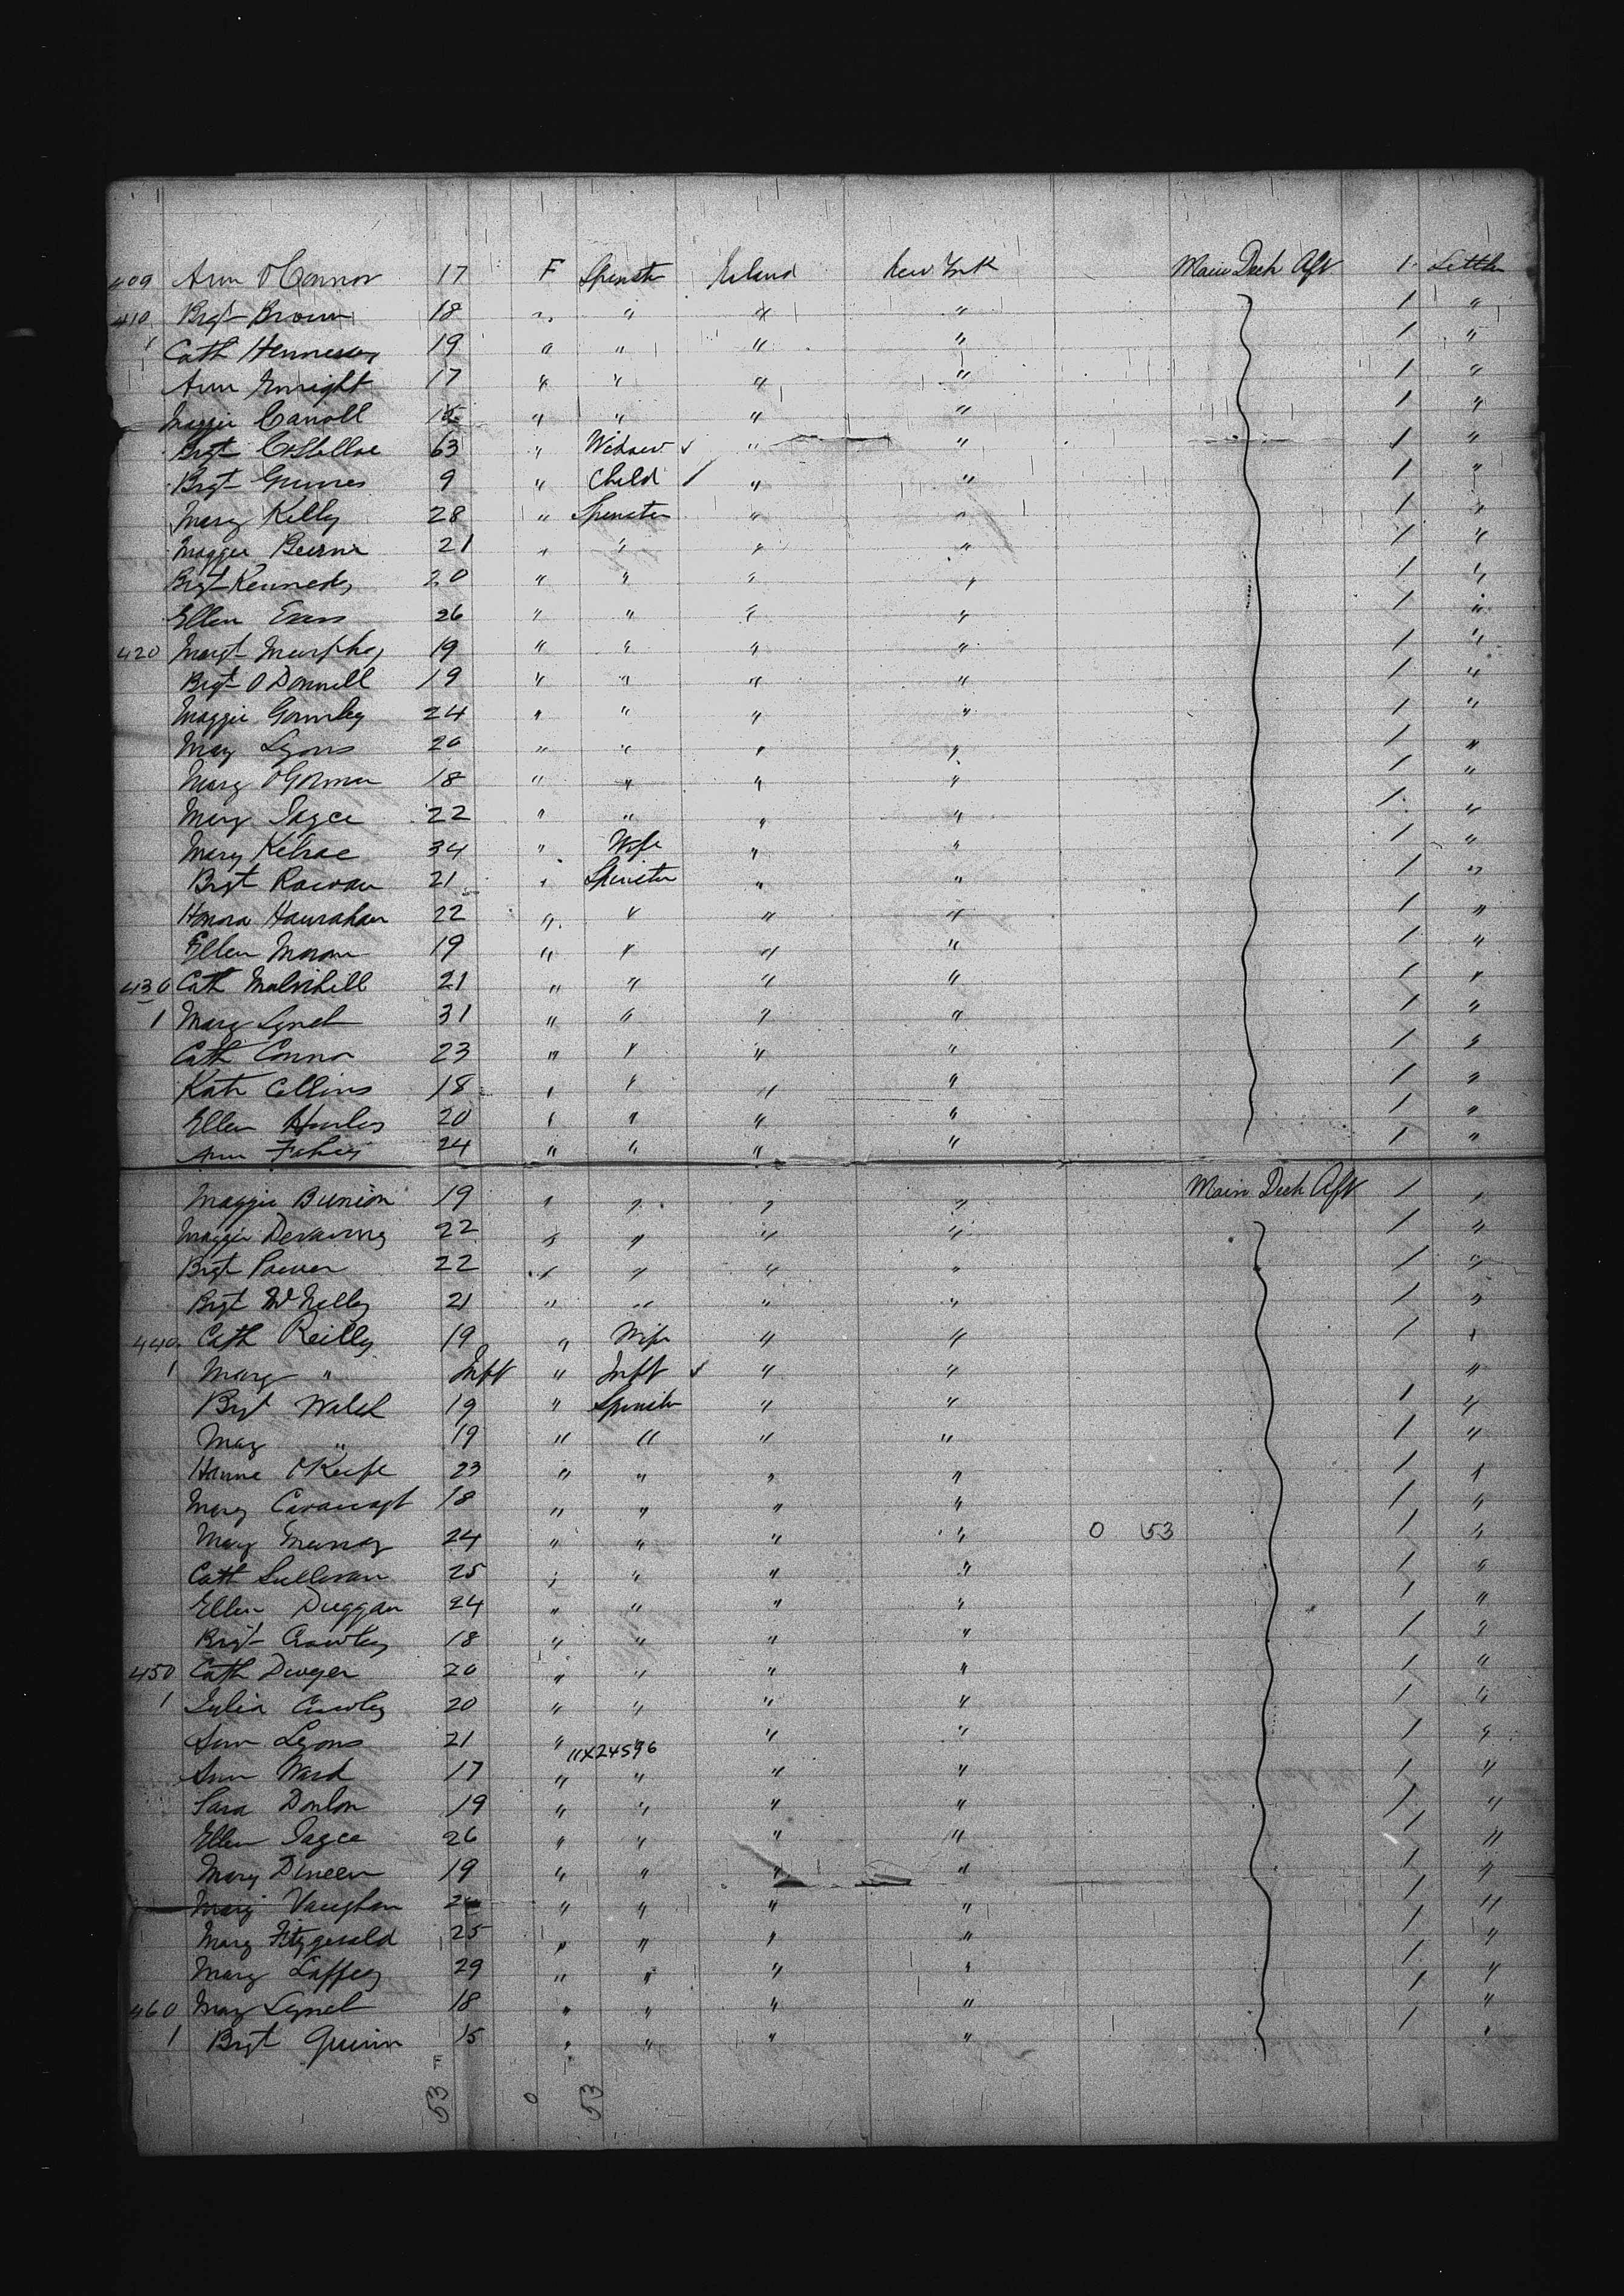 409 Ann O'Connor 17 F Spinster Ireland New York Main Deck Aft 1 Settler
410 Brgt Brown 18 " " " " 1 "
1 Cath Hennessy 19 " " " " 1 "
Ann Enright 17 " " " " 1 "
Maggie Carroll 15 " " " " 1 "
Brgt Costelloe 63 " Widow " " 1 "
Brgt Grimes 9 " Child " " 1 "
Mary Kelly 28 " Spinster " " 1 "
Maggie Beirne 21 " " " " 1 "
Brgt Kennedy 20 " " " " 1 "
Ellen 26 " " " " 1 "
420 Margt Murphy 19 " " " " 1 "
Brgt O'Donnell 19 " " " " 1 "
Maggie Gormley 24 " " " " 1 "
May Lyons 20 " " " " 1 "
Mary O'Gorman 18 " " " " 1 "
Mary 22 " " " " 1 "
Mary 34 " Wife " " 1 "
Brgt 21 " Spinster " " 1 "
Honora Hanrahan 22 " " " " 1 "
Ellen Moran 19 " " " " 1 "
430 Cath Mulvihill 21 " " " " 1 "
1 Mary Lynch 31 " " " " 1 "
Cath Connor 23 " " " " 1 "
Kate Collins 18 " " " " 1 "
Ellen 20 " " " " 1 "
Ann Fahey 24 " " " " 1 "
Maggie Bunion 19 " " " " Main Deck Aft 1 "
Maggie 22 " " " " 1 "
Brgt Power 22 " " " " 1 "
Brgt 21 " " " " 1 "
440 Cath Reilly 19 " Wife " " 1 "
1 Mary " Inft " Inft " " "
Brgt Walsh 19 " Spinster " " 1 "
May " 19 " " " " 1 "
Hanna O'Keefe 23 " " " " 1 "
Mary Cavanagh 18 " " " " 1 "
Mary Murray 24 " " " " 0 53 1 "
Cath Sullivan 25 " " " " 1 "
Ellen Duggan 24 " " " " 1 "
Brgt Crowley 18 " " " " 1 "
450 Cath Dwyer 20 " " " " 1 "
1 Julia 20 " " " " 1 "
Ann Lyons 21 " " " " 1 "
11X24596
Ann Ward 17 " " " " 1 "
Sara Donlon 19 " " " " 1 "
Ellen 26 " " " " 1 "
Mary Dineen 19 " " " " 1 "
Mary Vaughan " " " " 1 "
Mary Fitzgerald 25 " " " " 1 "
Mary Laffey 29 " " " " 1 "
460 May Lynch 18 " " " " 1 "
1 Brgt Quinn 15 " " " " 1 "
F
53 0 53